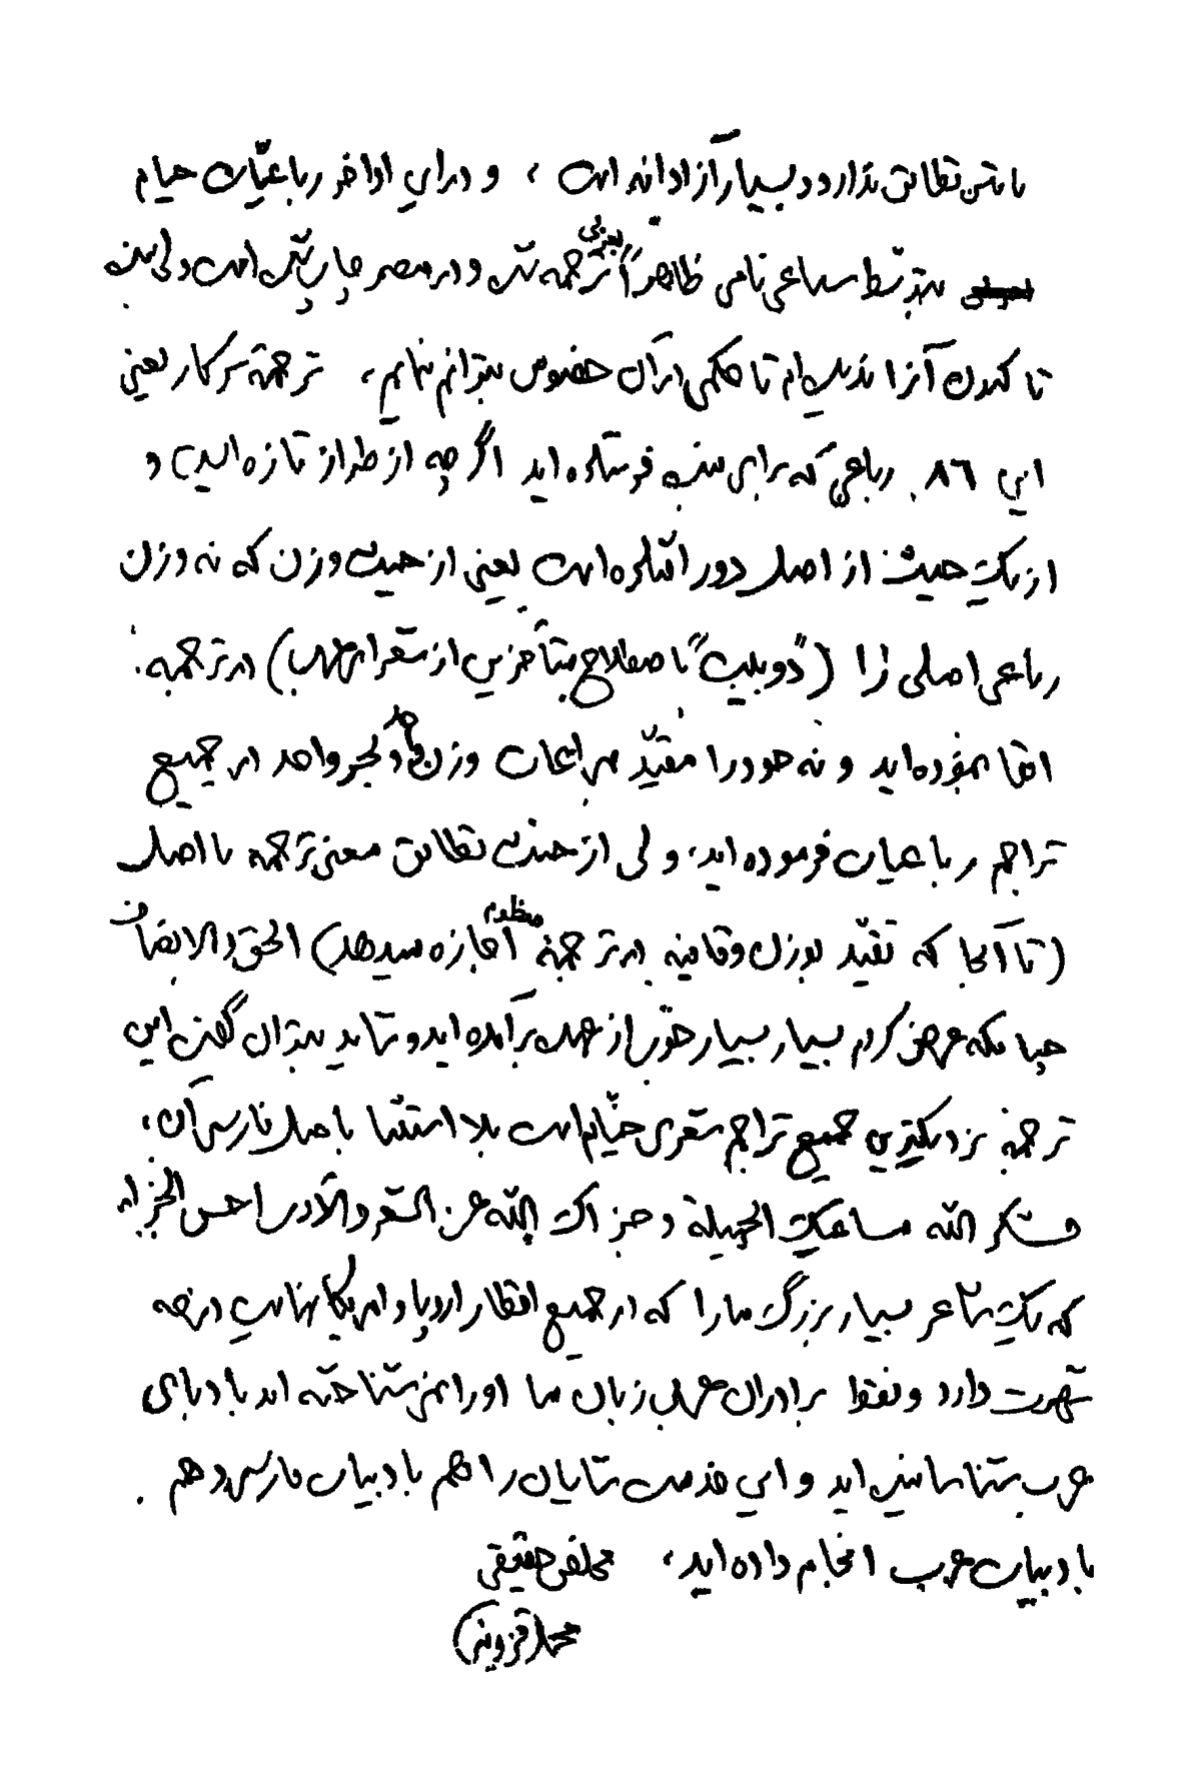 با متن تطابق ندارد و بسیار آزادانه است ، و در این اواخر رباعیّات خیام
بتوسّط سباعی نامی ظاهراً بعربی ترجمه شده و در مصر چاپ شده است ولی بنده
تا کنون آنرا ندیده‌ام تا حکمی در آن خصوص بتوانم بنمایم ، ترجمهٔ سرکار یعنی
این ٨٦ رباعی که برای بنده فرستاده اید اگر چه از طراز تازه ایست و
از یک حیث از اصل دور افتاده است یعنی از حیث وزن که نه وزن
رباعی اصلی را ("دو بیت" باصطلاح متأخرین از شعراء عرب) در ترجمه
ابقا نموده‌اید و نه خود را مقیّد بمراعات وزن واحد و بحر واحد در جمیع
تراجم رباعیات فرموده اید ، ولی از حیث تطابق معنی ترجمه با اصل
(تا آنجا که تقیّد بوزن و قافیه در ترجمهٔ منظوم اجازه میدهد) الحق والانصاف
چنانکه عرض کردم بسیار بسیار خوب از عهده برآمده اید و شاید بتوان گفت این
ترجمه نزدیکترین جمیع تراجم شعری خیّام است بلا استثنا باصل فارسی آن ،
فشکر الله مساعیک الجمیلة و جزاک الله عن الشعر والأدب احسن الجزاء
که یک شاعر بسیار بزرگ ما را که در جمیع اقطار اروپا و امریکا نهایت درجه
شهرت دارد و فقط برادران عرب زبان ما او را نمی شناخته اند بادبای
عرب شناسانیده اید و این خدمت شایان را هم بادبیات فارسی و هم
بادبیات عرب انجام داده اید ، مخلص حقیقی
محمد قزوینی